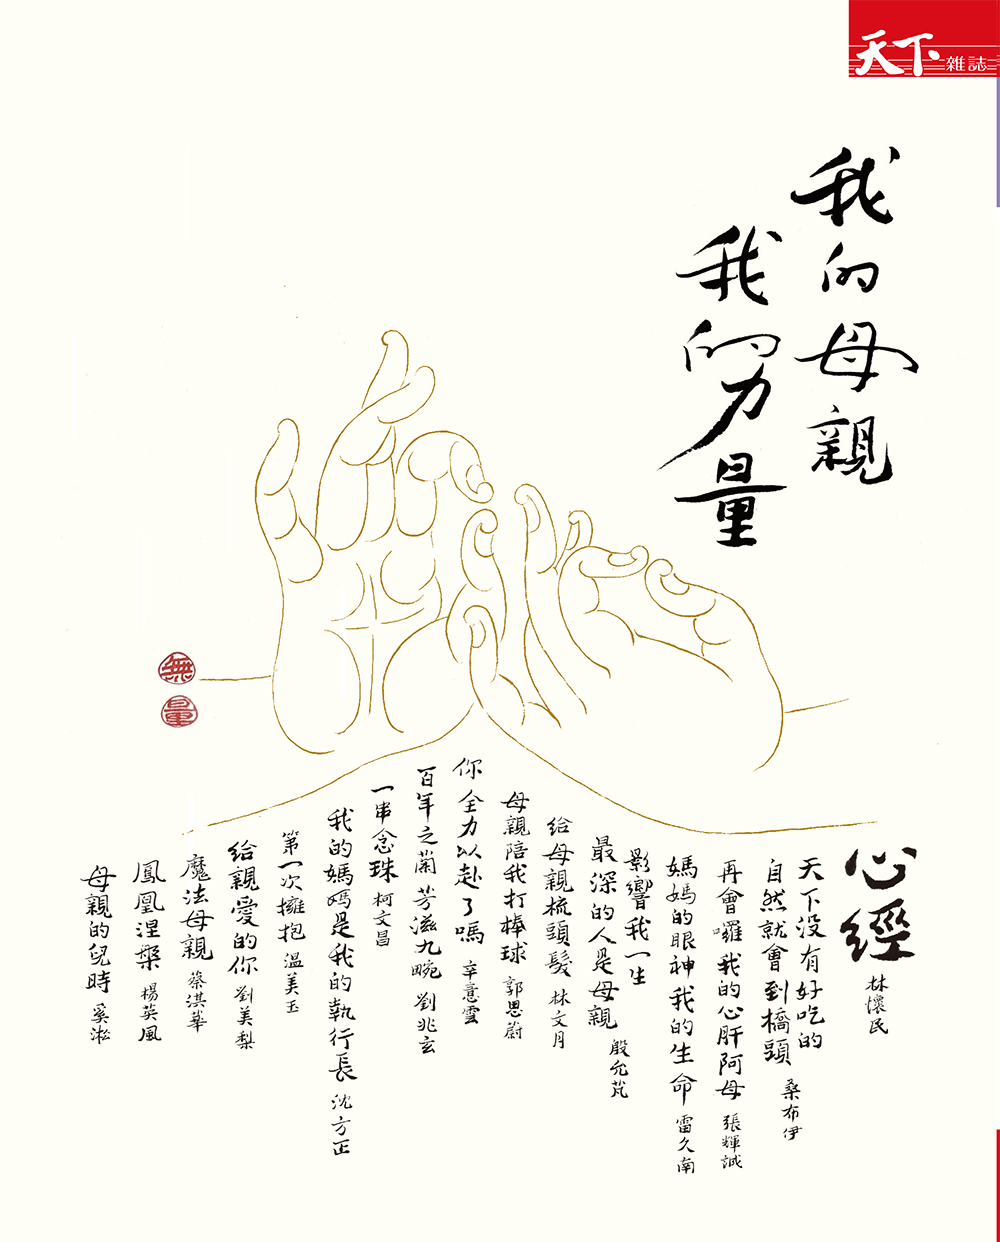 天下雜誌
我的母親
我的力量
無量
心經 林懷民
天下没有好吃的
自然就會到橋頭 桑布伊
再會囉我的心肝阿母 張輝誠
媽媽的眼神我的生命 雷久南
影響我一生
最深的人是母親 殷允芃
給母親梳頭髮 林文月
母親陪我打棒球 郭思蔚
你全力以赴了嗎 辛意雲
百年之蘭芳滋九畹 劉兆玄
一串念珠 柯文昌
我的媽媽是我的執行長 沈方正
第一次擁抱 溫美玉
給親愛的你 劉美梨
魔法母親 蔡淇華
鳳凰涅槃 楊英風
母親的兒時 奚淞